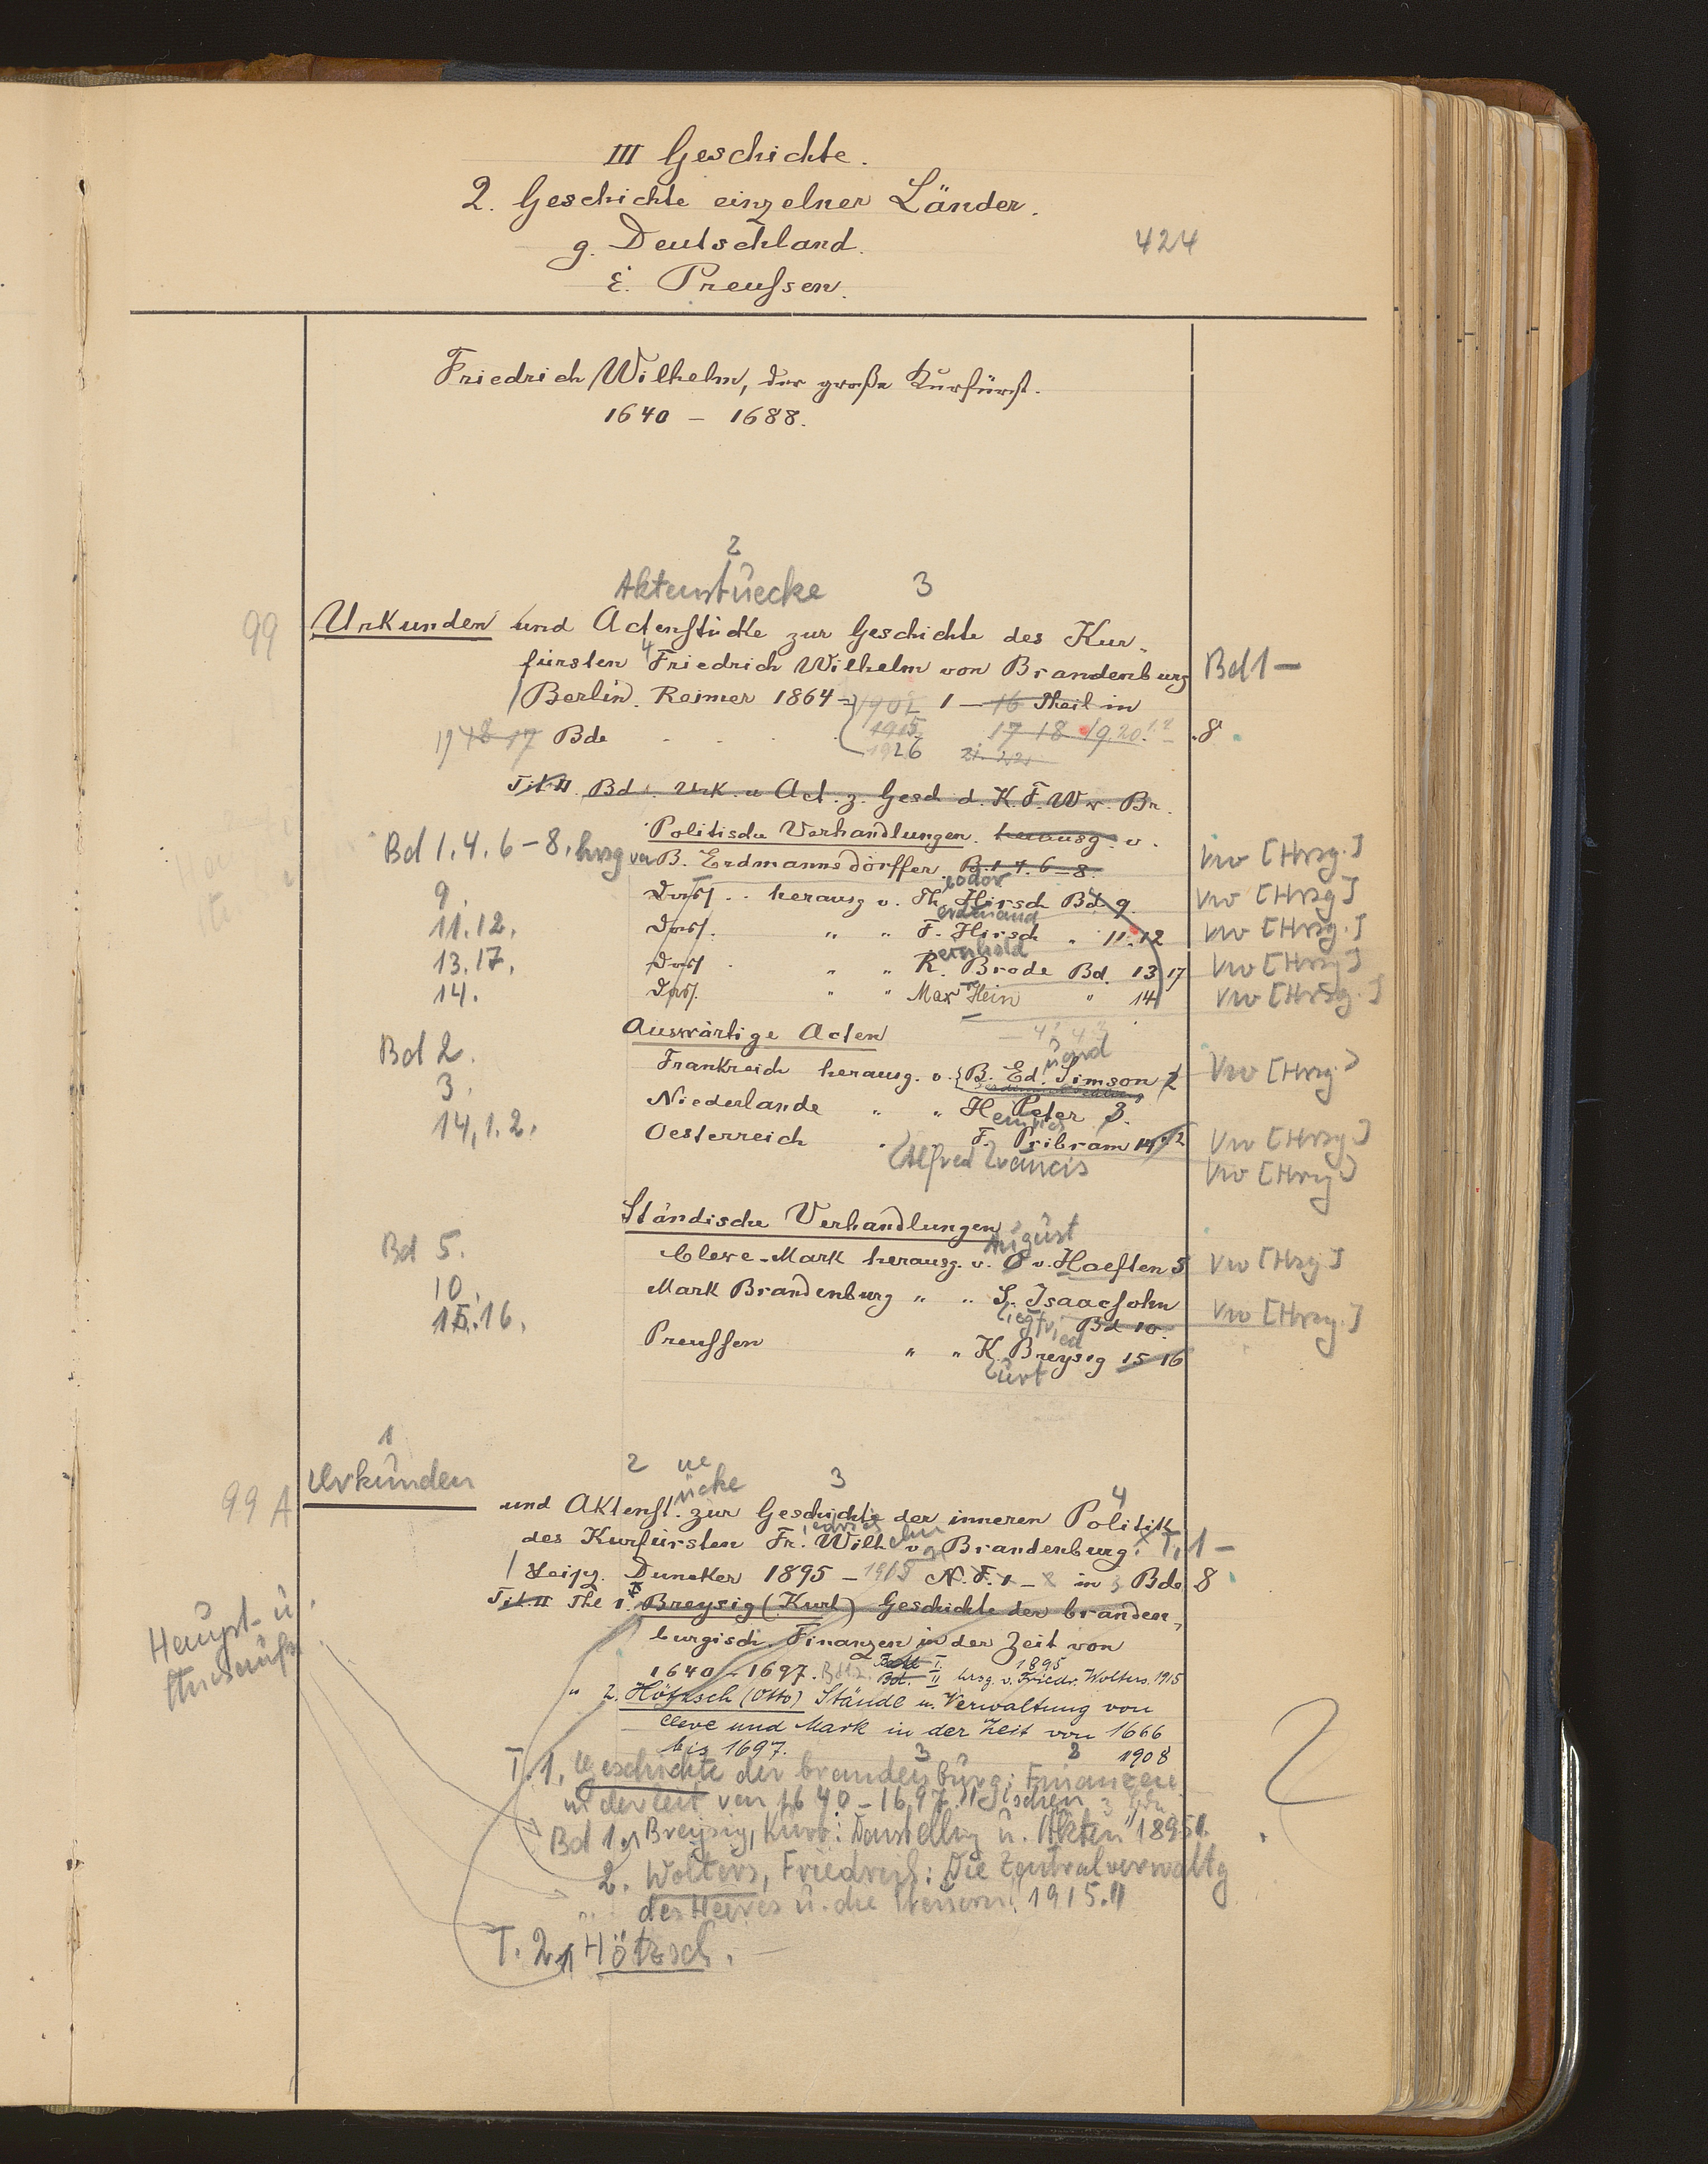 III Geschichte.
2. Geschichte einzelner Länder.
g. Deutschland.
424
ε. Preussen.
Friedrich Wilhelm, der große Kurfürst.
1640 – 1688.
2
Aktenstuecke 3
99 Urkunden und Actenstücke zur Geschichte des Kur-
fürsten 4 Friedrich Wilhelm von Brandenburg Bd 1 –
Berlin. Reimer 1864 = 1901 1 – 16 Theil in
18 17 Bde 1915 17 18 19. 20 1.2 8
1926 21. 22
Tit II Bd . Urk. u Act. z. Gesch d. K. F. W v. Br.
Politische Verhandlungen. herausg. v.
Bd 1. 4. 6 – 8. hrsg von B. Erdmannsdörffer. B. 1. 4. 6 – 8. Vw [Hrsg.]
9. Dass. .. herausg v. Th eodor Hirsch Bd. 9. Vw [Hrsg]
11. 12. Dass. " " F. erdinand Hirsch " 11. 12 Vw [Hrsg.]
13. 17. Dass. " " R. einhold Brode Bd. 13 17 Vw [Hrsg]
14. Dass. " " Max Hein " 14 Vw [Hrsg.]
Auswärtige Acten
Bd 2. Frankreich herausg. v. B. Ed. uard Simson 2 Vw [Hrsg]
3. Niederlande " " H einrich Peter 3.
14, 1. 2. Oesterreich " F. Pribram 14 1.2 Vw [Hrsg]
Alfred Francis Vw [Hrsg]
Ständische Verhandlungen
August
Bd 5. Cleve-Mark herausg. v. v. Haeften 5 Vw [Hrsg]
10. Mark Brandenburg " " S. Isaacsohn
15. 16. iegfried Bd 10. Vw [Hrsg.]
Preussen " " K. Breysig 15 16
urt
1
2 ue 3
99 A Urkunden
und Aktenst. ücke zur Geschichte der inneren 4 Politik
des Kurfürsten Fr. iedrich Wilh elm v. Brandenburg. T. 1 –
Leipz. Duncker 1895 – 1915 N. F. 1 – 2 in 3 Bde 8
Tit. II Thl 1. Breysig (Kurt) Geschichte der branden-
burgisch. Finanzen in der Zeit von
1640 – 1697. Bd I. 1895
Bd. II hrsg. v. Friedr. Wolters. 1915
" 2. Hötzsch (Otto) Stände u. Verwaltung von
Cleve und Mark in der Zeit von 1666
bis 1697. 1908
Haupt- u.
T. 1, Geschichte der brandenburgischen 3 Finanzen 2
in der Zeit von 1640 – 1697.
Bd 1. Breysig, Kurt: Darstellung u. Akten 1895.
2. Wolters, Friedrich: Die Zentralverwaltg
des Heeres u. die Steuern. 1915.
T. 2. Hötzsch.
2